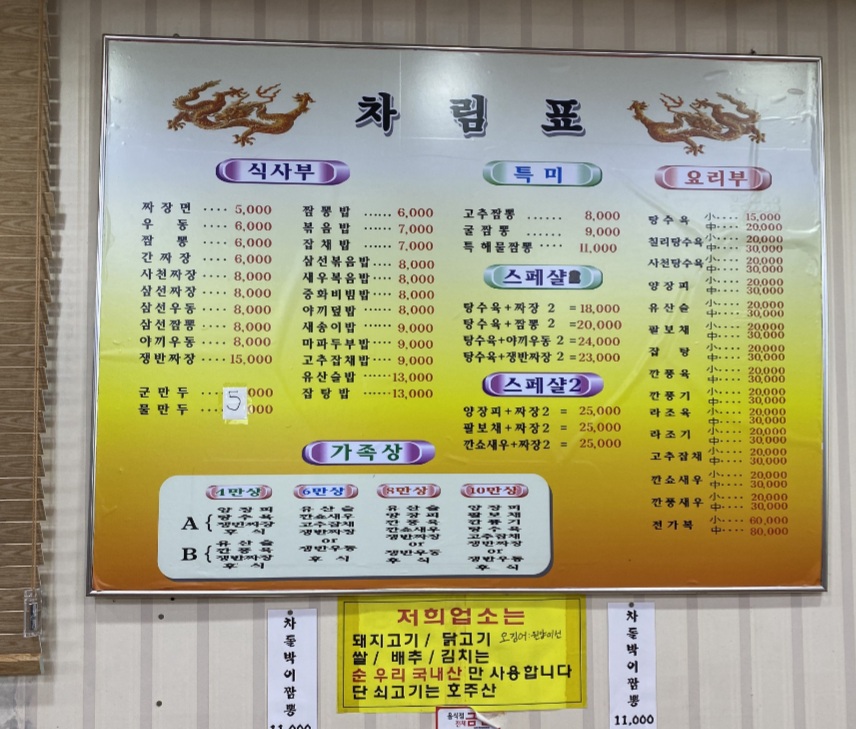 차림표
식사부
짜장면 ···· 5,000
우동 ···· 6,000
짬뽕 ···· 6,000
간짜장 ···· 6,000
사천짜장 ···· 8,000
삼선짜장 ···· 8,000
삼선우동 ···· 8,000
삼선짬뽕 ···· 8,000
야끼우동 ···· 8,000
쟁반짜장 ···· 15,000
군만두 ···· 5,000
물만두 ···· 000
짬뽕밥 ······ 6,000
볶음밥 ······ 7,000
잡채밥 ······ 7,000
삼선볶음밥 ···· 8,000
새우볶음밥 ···· 8,000
중화비빔밥 ···· 8,000
야끼덮밥 ······ 8,000
새송이밥 ······ 9,000
마파두부밥 ···· 9,000
고추잡채밥 ···· 9,000
유산슬밥 ······ 13,000
잡탕밥 ······ 13,000
특미
고추짬뽕 ...... 8,000
굴짬뽕 ...... 9,000
특해물짬뽕 ···· 11,000
스페샬
탕수육+짜장 2 =18,000
탕수육+짬뽕 2 =20,000
탕수육+야끼우동 2 =24,000
탕수육+쟁반짜장 2 =23,000
스페샬2
양장피+짜장2 = 25,000
팔보채+짜장2 = 25,000
깐쇼새우+짜장2 = 25,000
요리부
탕수육 小···· 15,000
中···· 20,000
칠리탕수육 小···· 20,000
中···· 30,000
사천탕수육 小···· 20,000
中···· 30,000
양장피 小···· 20,000
中···· 30,000
유산슬 小···· 20,000
中···· 30,000
팔보채 小···· 20,000
中···· 30,000
잡탕 小···· 20,000
中···· 30,000
깐풍육 小···· 20,000
中···· 30,000
깐풍기 小···· 20,000
中···· 30,000
라조육 小···· 20,000
中···· 30,000
라조기 小···· 20,000
中···· 30,000
고추잡채 小···· 20,000
中···· 30,000
깐쇼새우 小···· 20,000
中···· 30,000
깐풍새우 小···· 20,000
中···· 30,000
전가복 小···· 60,000
中···· 80,000
가족상
4만상
A {
양장피
탕수육
쟁반짜장
후식
B {
유산슬
깐풍육
쟁반짜장
후식
6만상
유산슬
깐쇼새우
고추잡채
쟁반짜장
or
쟁반우동
후식
8만상
유산슬
양장피
깐풍육
깐쇼새우
쟁반짜장
or
쟁반우동
후식
10만상
양장피
팔보채
깐풍기
탕수육
고추잡채
쟁반짜장
or
쟁반우동
후식
차돌박이짬뽕
11,000
저희업소는
돼지고기 / 닭고기 오징어:원양어선
쌀 / 배추 / 김치는
순 우리 국내산 만 사용합니다
단 쇠고기는 호주산
차돌박이짬뽕
11,000
음식점
전체 금